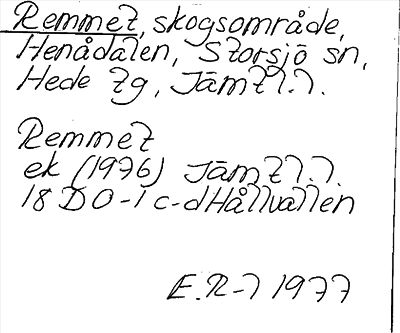 Remmet, skogsområde,
Henådalen, Storsjö sn,
Hede tg, Jämtl.l.
Remmet
ek (1976) Jämtl.l.
18 D 0-1 c-d Hållvallen
E.R-l 1977